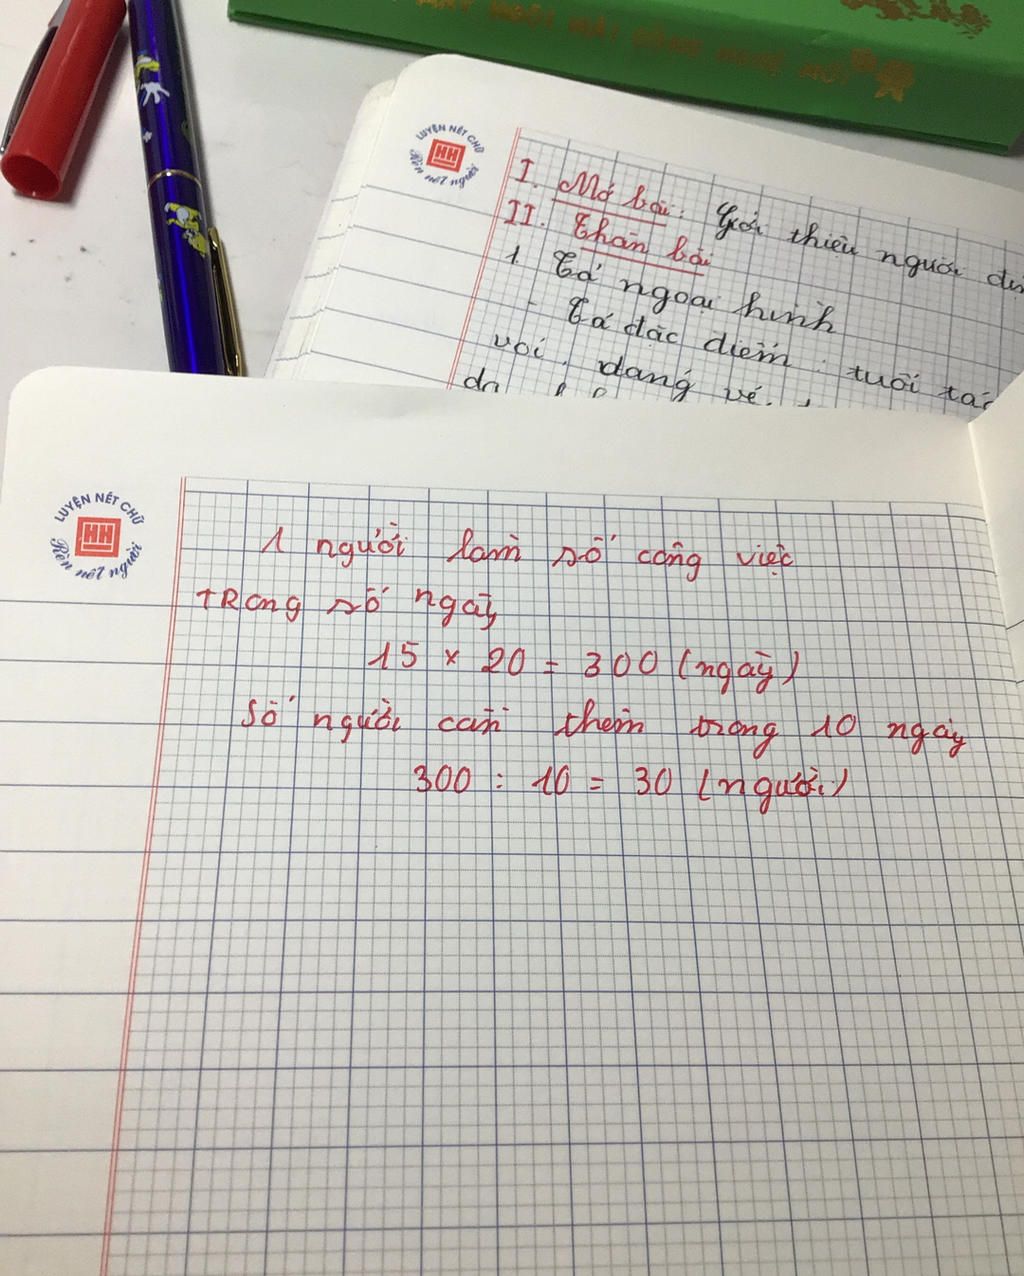 MÁY
LUYỆN NÉT CHỮ
HH
Rèn nết người
I. Mở bài: Giới thiệu người
II. Thân bài
1. Tả ngoại hình
- Tả đặc điểm: tuổi tác
dáng vẻ,
LUYỆN NÉT CHỮ
HH
Rèn nết người
1 người làm số công việc
trong số ngày
15 × 20 = 300 (ngày)
Số người cần thêm trong 10 ngày
300 : 10 = 30 (người)